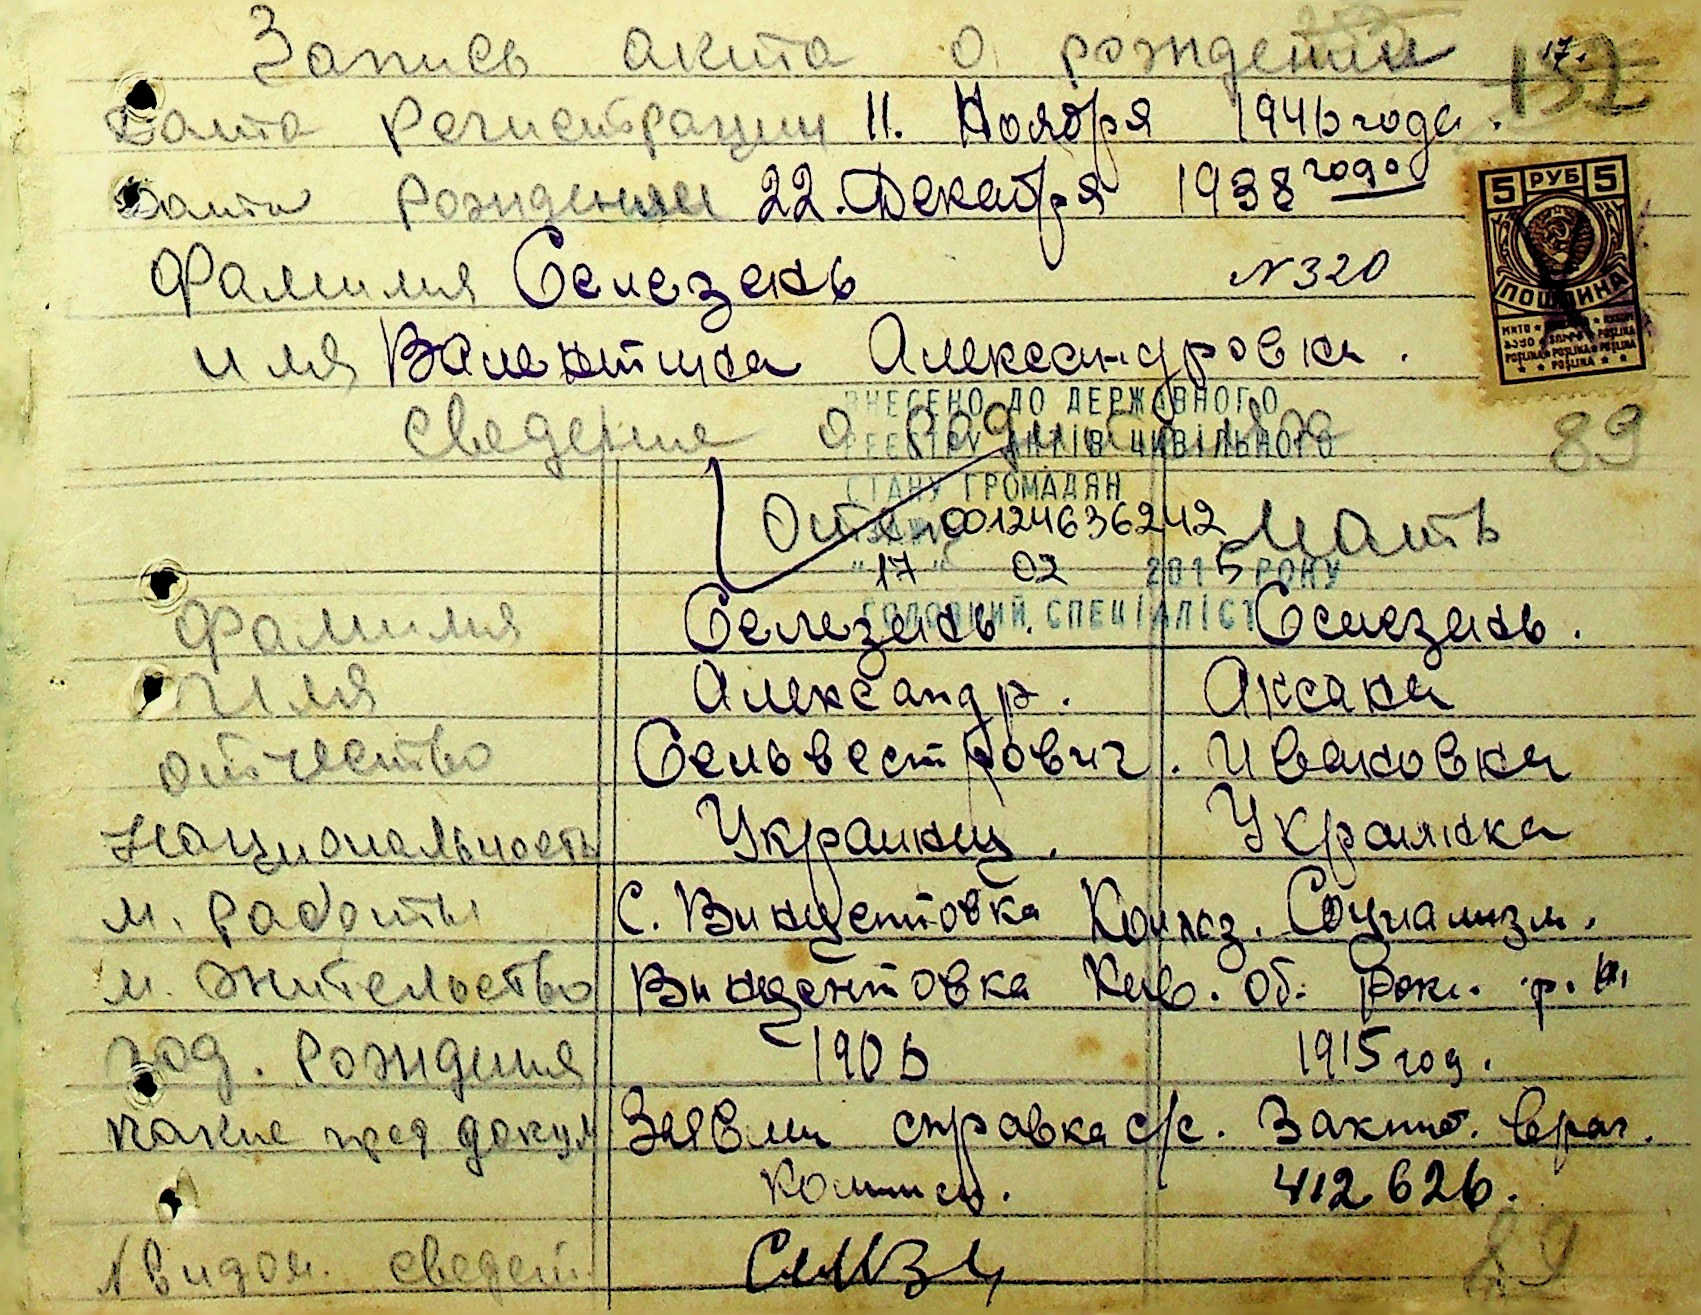 Запись акта о рождении
132
17.
Дата регистрации 11. Ноября 1946 года.
Дата рождения 22. Декабря 1938 года
5 РУБ 5
ПОШЛИНА
Фамилия Селезень №320
имя Валентина Александровна.
сведение о родителях
ВНЕСЕНО ДО ДЕРЖАВНОГО
РЕЄСТРУ АКТІВ ЦИВІЛЬНОГО
89
СТАНУ ГРОМАДЯН
Отец 00124636242 Мать
"17" 02 2015 РОКУ
ГОЛОВНИЙ СПЕЦІАЛІСТ
Фамилия Селезень. Селезень.
Имя Александр. Аксана
отчество Сельвестрович. Ивановна
Национальность Украинец. Украинка
м. работы с. Винцентовка Колхоз. Социализм.
м. жительство Винцентовка Киев. об. Рож. р. н.
год. рождения 1906 1915 год.
какие пред докум Заявли справка с/с. Заключ. врач.
комиси. 412626.
№ видом. сведет.
89